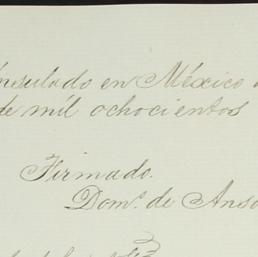 nsulado en México
de mil ochocientos
Firmado.
Domº. de Anso